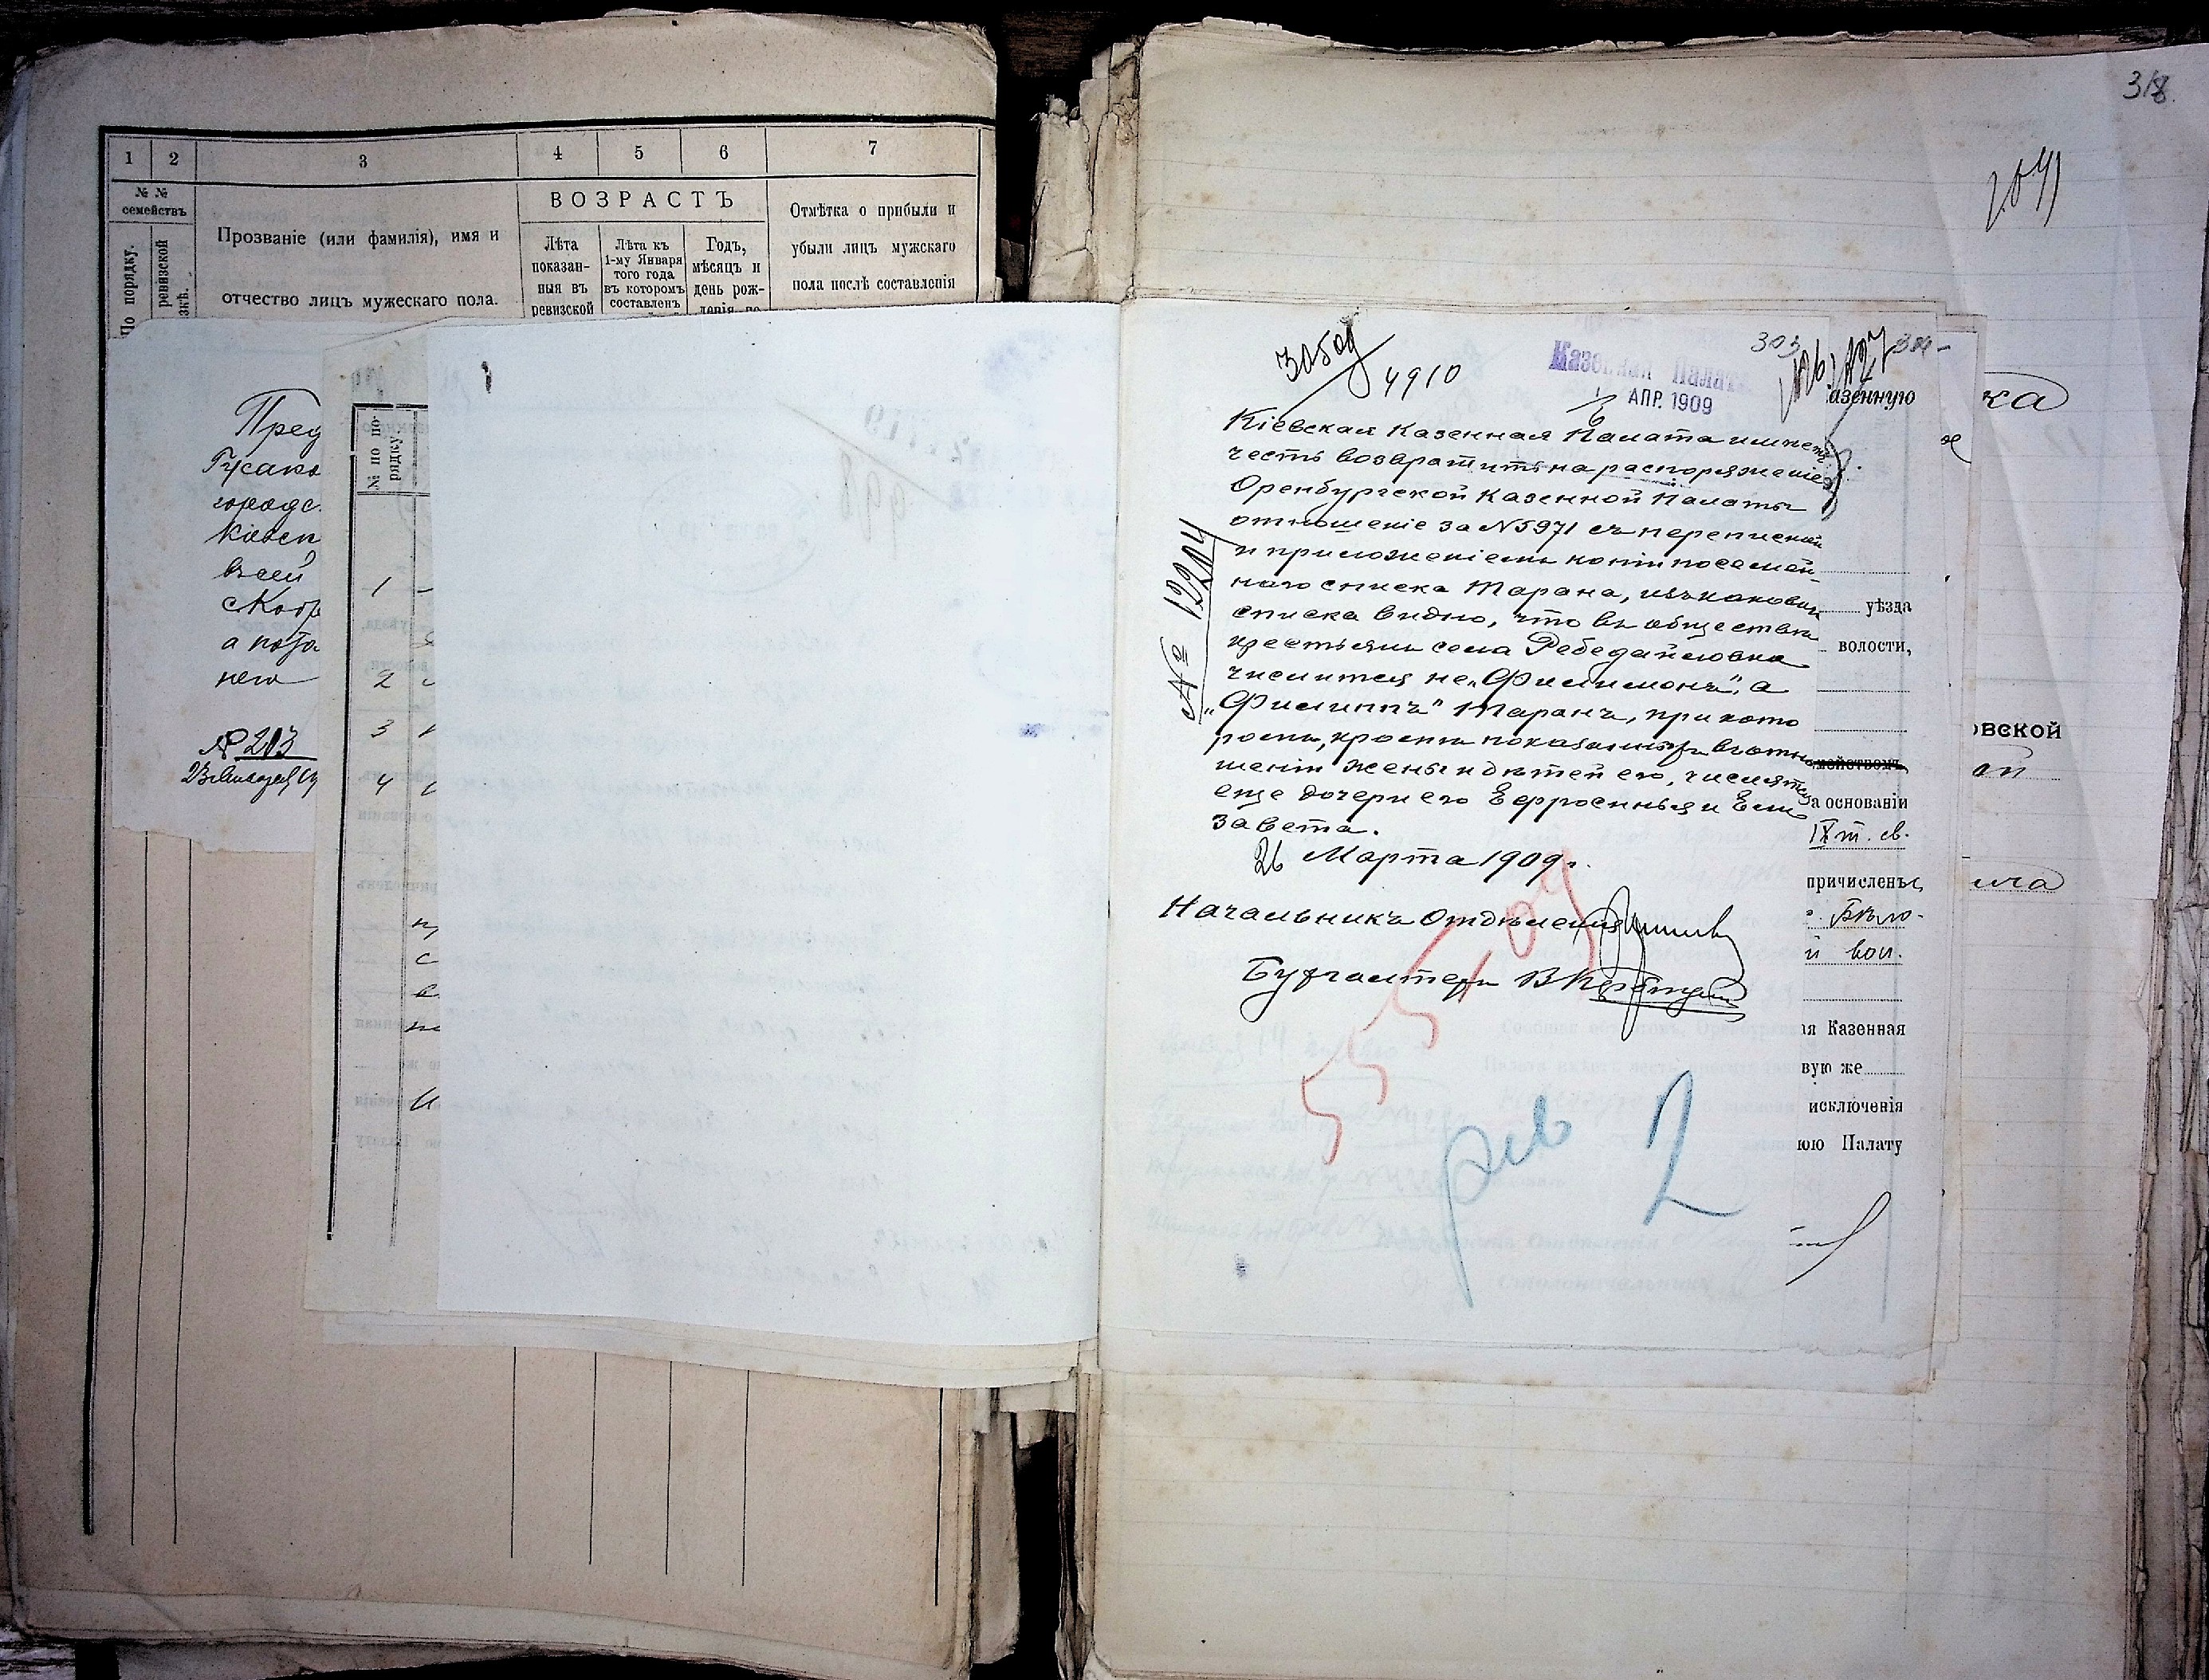 1 2 3 4 5 6 7
№ № семействъ
По порядку.
ревизской
Прозваніе (или фамилія), имя и
отчество лицъ мужескаго пола.
ВОЗРАСТЪ
Лѣта
показан-
ныя въ
ревизской
Лѣта къ
1-му Января
того года
въ которомъ
составленъ
Годъ,
мѣсяцъ и
день рож-
Отмѣтка о прибыли и
убыли лицъ мужскаго
пола послѣ составленія
Пред
Гусако
городс.
Казен
всей
а пота
него
№ 213
№ по по-
рядку.
1
2
3
4
318
303
4910
Казенная Палата
АПР. 1909
Кіевская Казенная Палата имѣетъ
честь возвратить на распоряженіе
Оренбургской Казенной Палаты
отношеніе за № 5971 съ перепиской
и приложеніемъ копіи посемей-
наго списка Тарана, изъ какового
списка видно, что въ обществѣ
крестьянъ села Ребедайловка
числится не „Филимонъ", а
„Филиппъ" Таранъ, при кото
ромъ, кромѣ показанныхъ въ отно
шеніи жены и дѣтей его, числятся
еще дочери его Ефросинья и Ели
завета.
26 Марта 1909 г.
№ 12204
Начальникъ Отдѣленія
Бухгалтеръ
рев 2
азенную
уѣзда
волости,
мействомъ
а основаніи
IX т. св.
причислены
г. Бѣло-
й вол.
я Казенная
вую же
исключенія
юю Палату
ка
овской
ой
ила